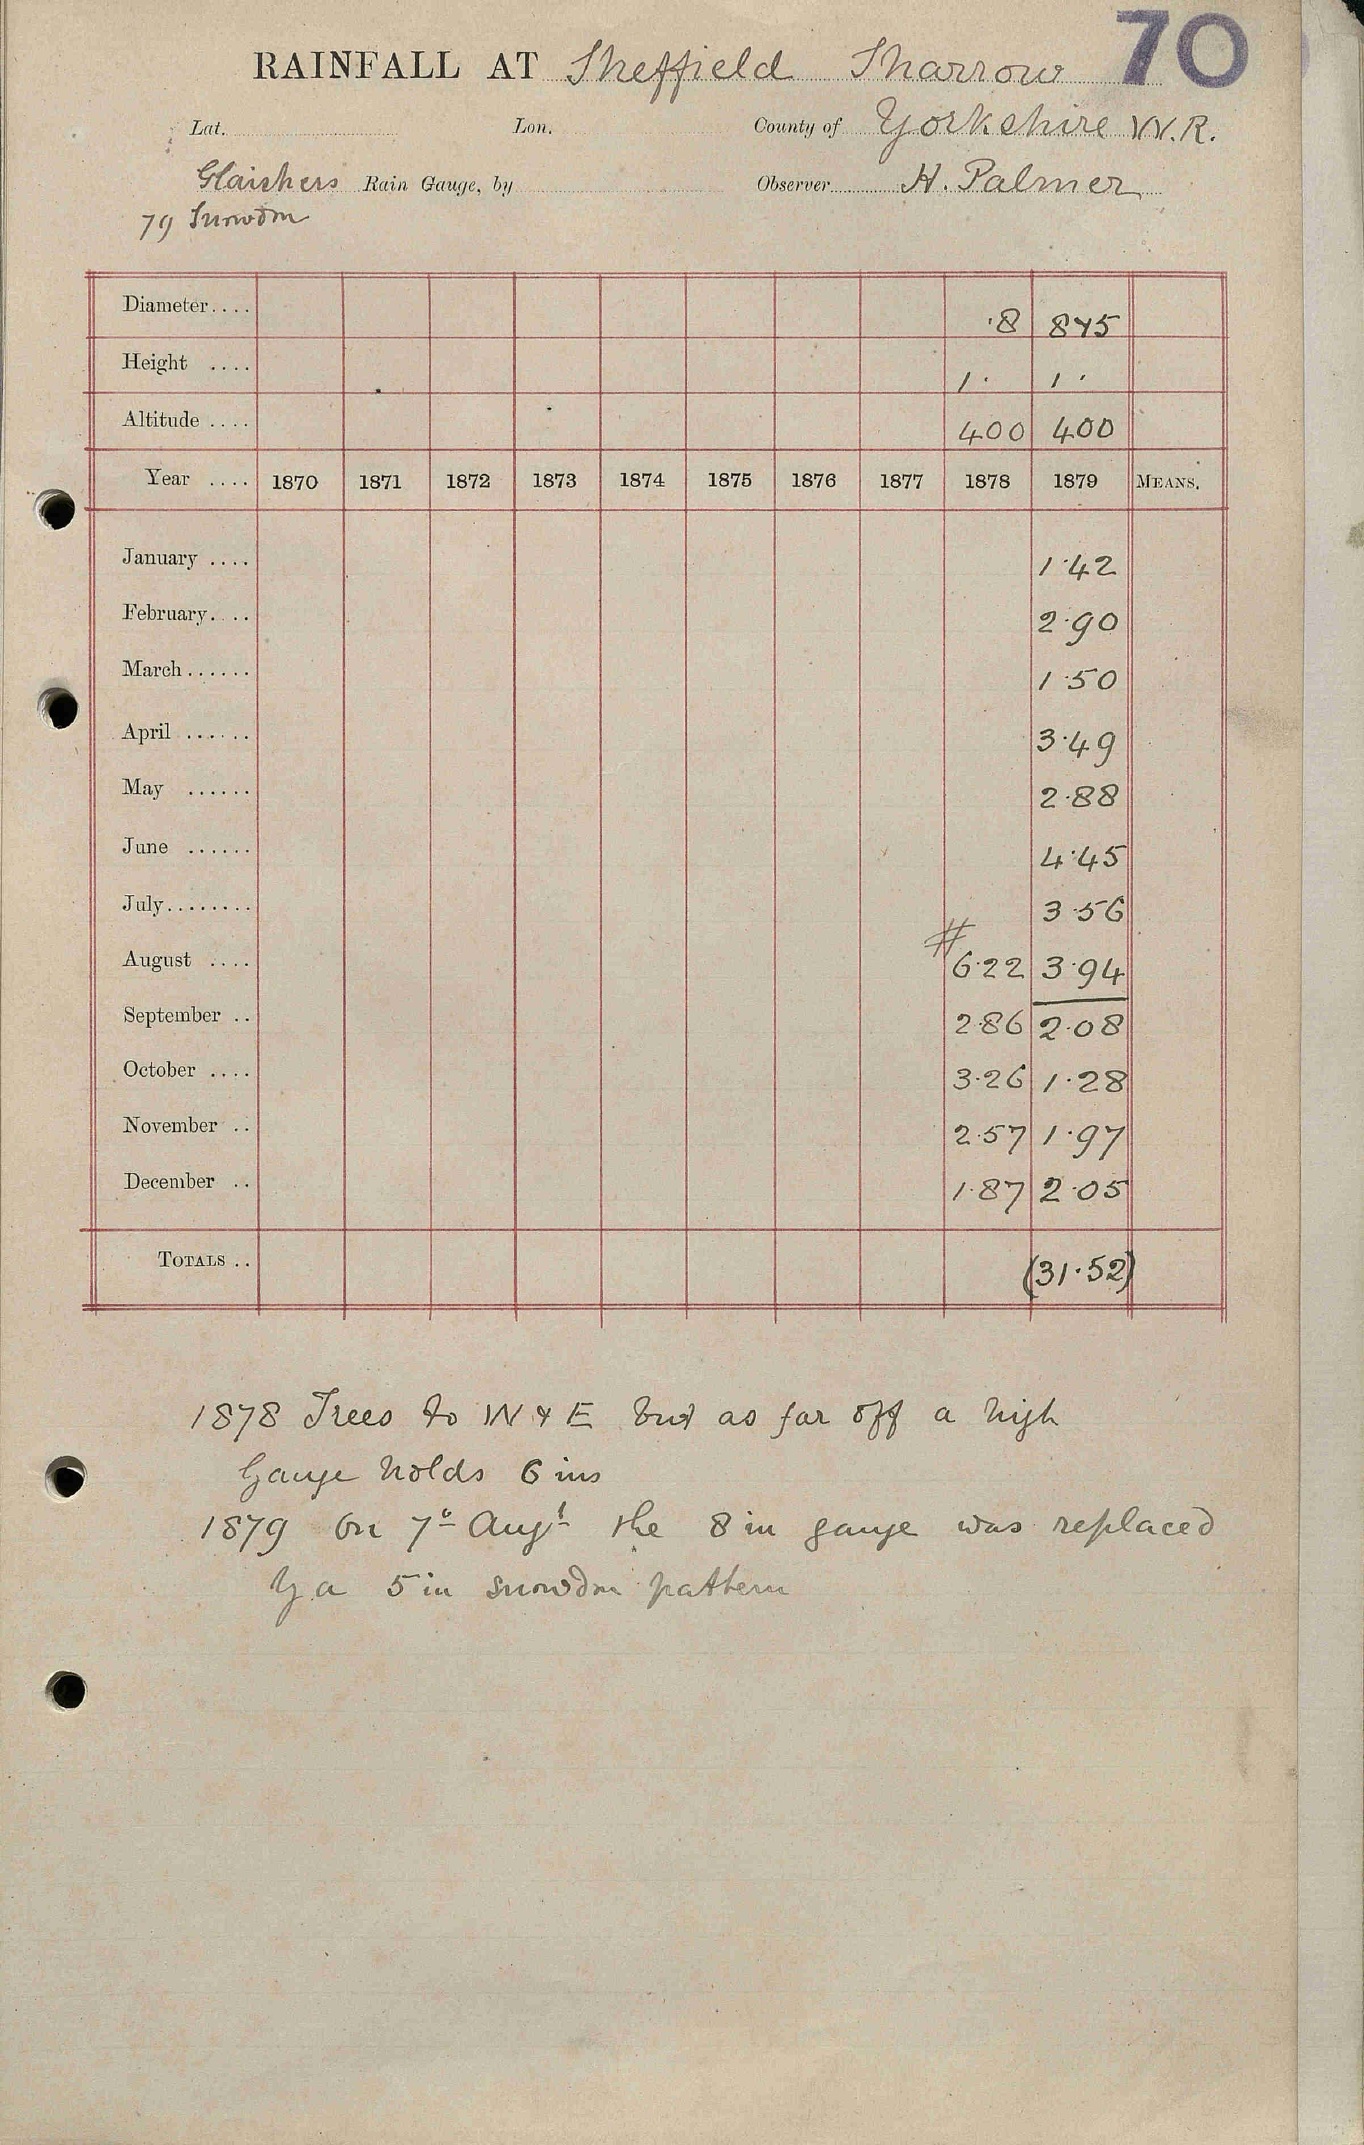 70
RAINFALL AT Sheffield Sharrow
Lat. Lon. County of Yorkshire W.R.
Glaishers Rain Gauge, by Observer H. Palmer
79 Snowdon
Diameter.... ·8 8&5
Height .... 1· 1·
Altitude .... 400 400
Year .... 1870 1871 1872 1873 1874 1875 1876 1877 1878 1879 MEANS.
January .... 1·42
February.... 2·90
March...... 1·50
April ...... 3·49
May ...... 2·88
June ...... 4·45
July........ 3·56
August .... # 6·22 3·94
September .. 2·86 2·08
October .... 3·26 1·28
November .. 2·57 1·97
December .. 1·87 2·05
TOTALS .. (31·52)
1878 Trees to W & E but as far off a high
Gauge holds 6 ins
1879 On 7th Augt the 8 in gauge was replaced
by a 5 in snowdon pattern